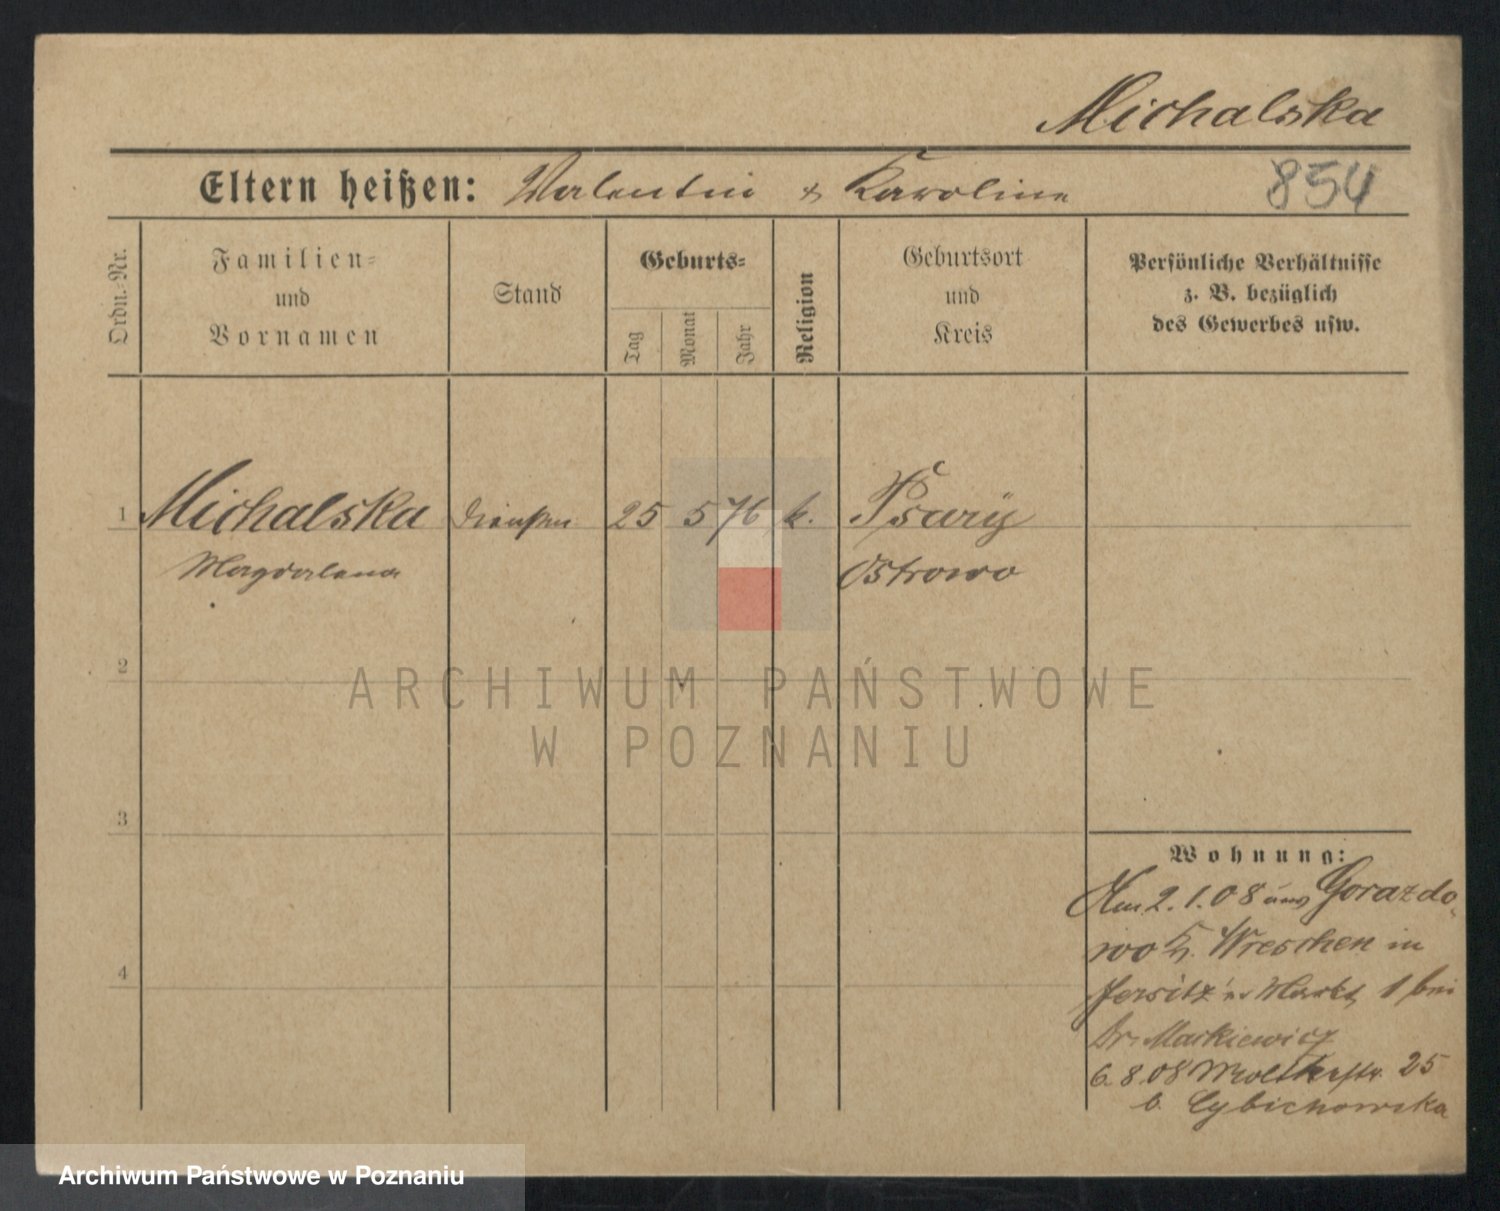 Michalska
Eltern heißen: Valentin & Karoline
854
Ordn.-Nr.
Familien-
und
Vornamen
Stand
Geburts-
Tag
Monat
Jahr
Religion
Geburtsort
und
Kreis
Persönliche Verhältnisse
z. B. bezüglich
des Gewerbes usw.
1 Michalska 25 5 76 k. Psary
Magdalena Ostrowo
2
ARCHIWUM PAŃSTWOWE
W POZNANIU
3
4
Wohnung:
Am 2.1.08 aus Gorazdo-
wo K. Wreschen in
Jersitz Markt 1 bei
Dr. Markiewicz
6.8.08 Moltkestr. 25
b. Cybichowska
Archiwum Państwowe w Poznaniu